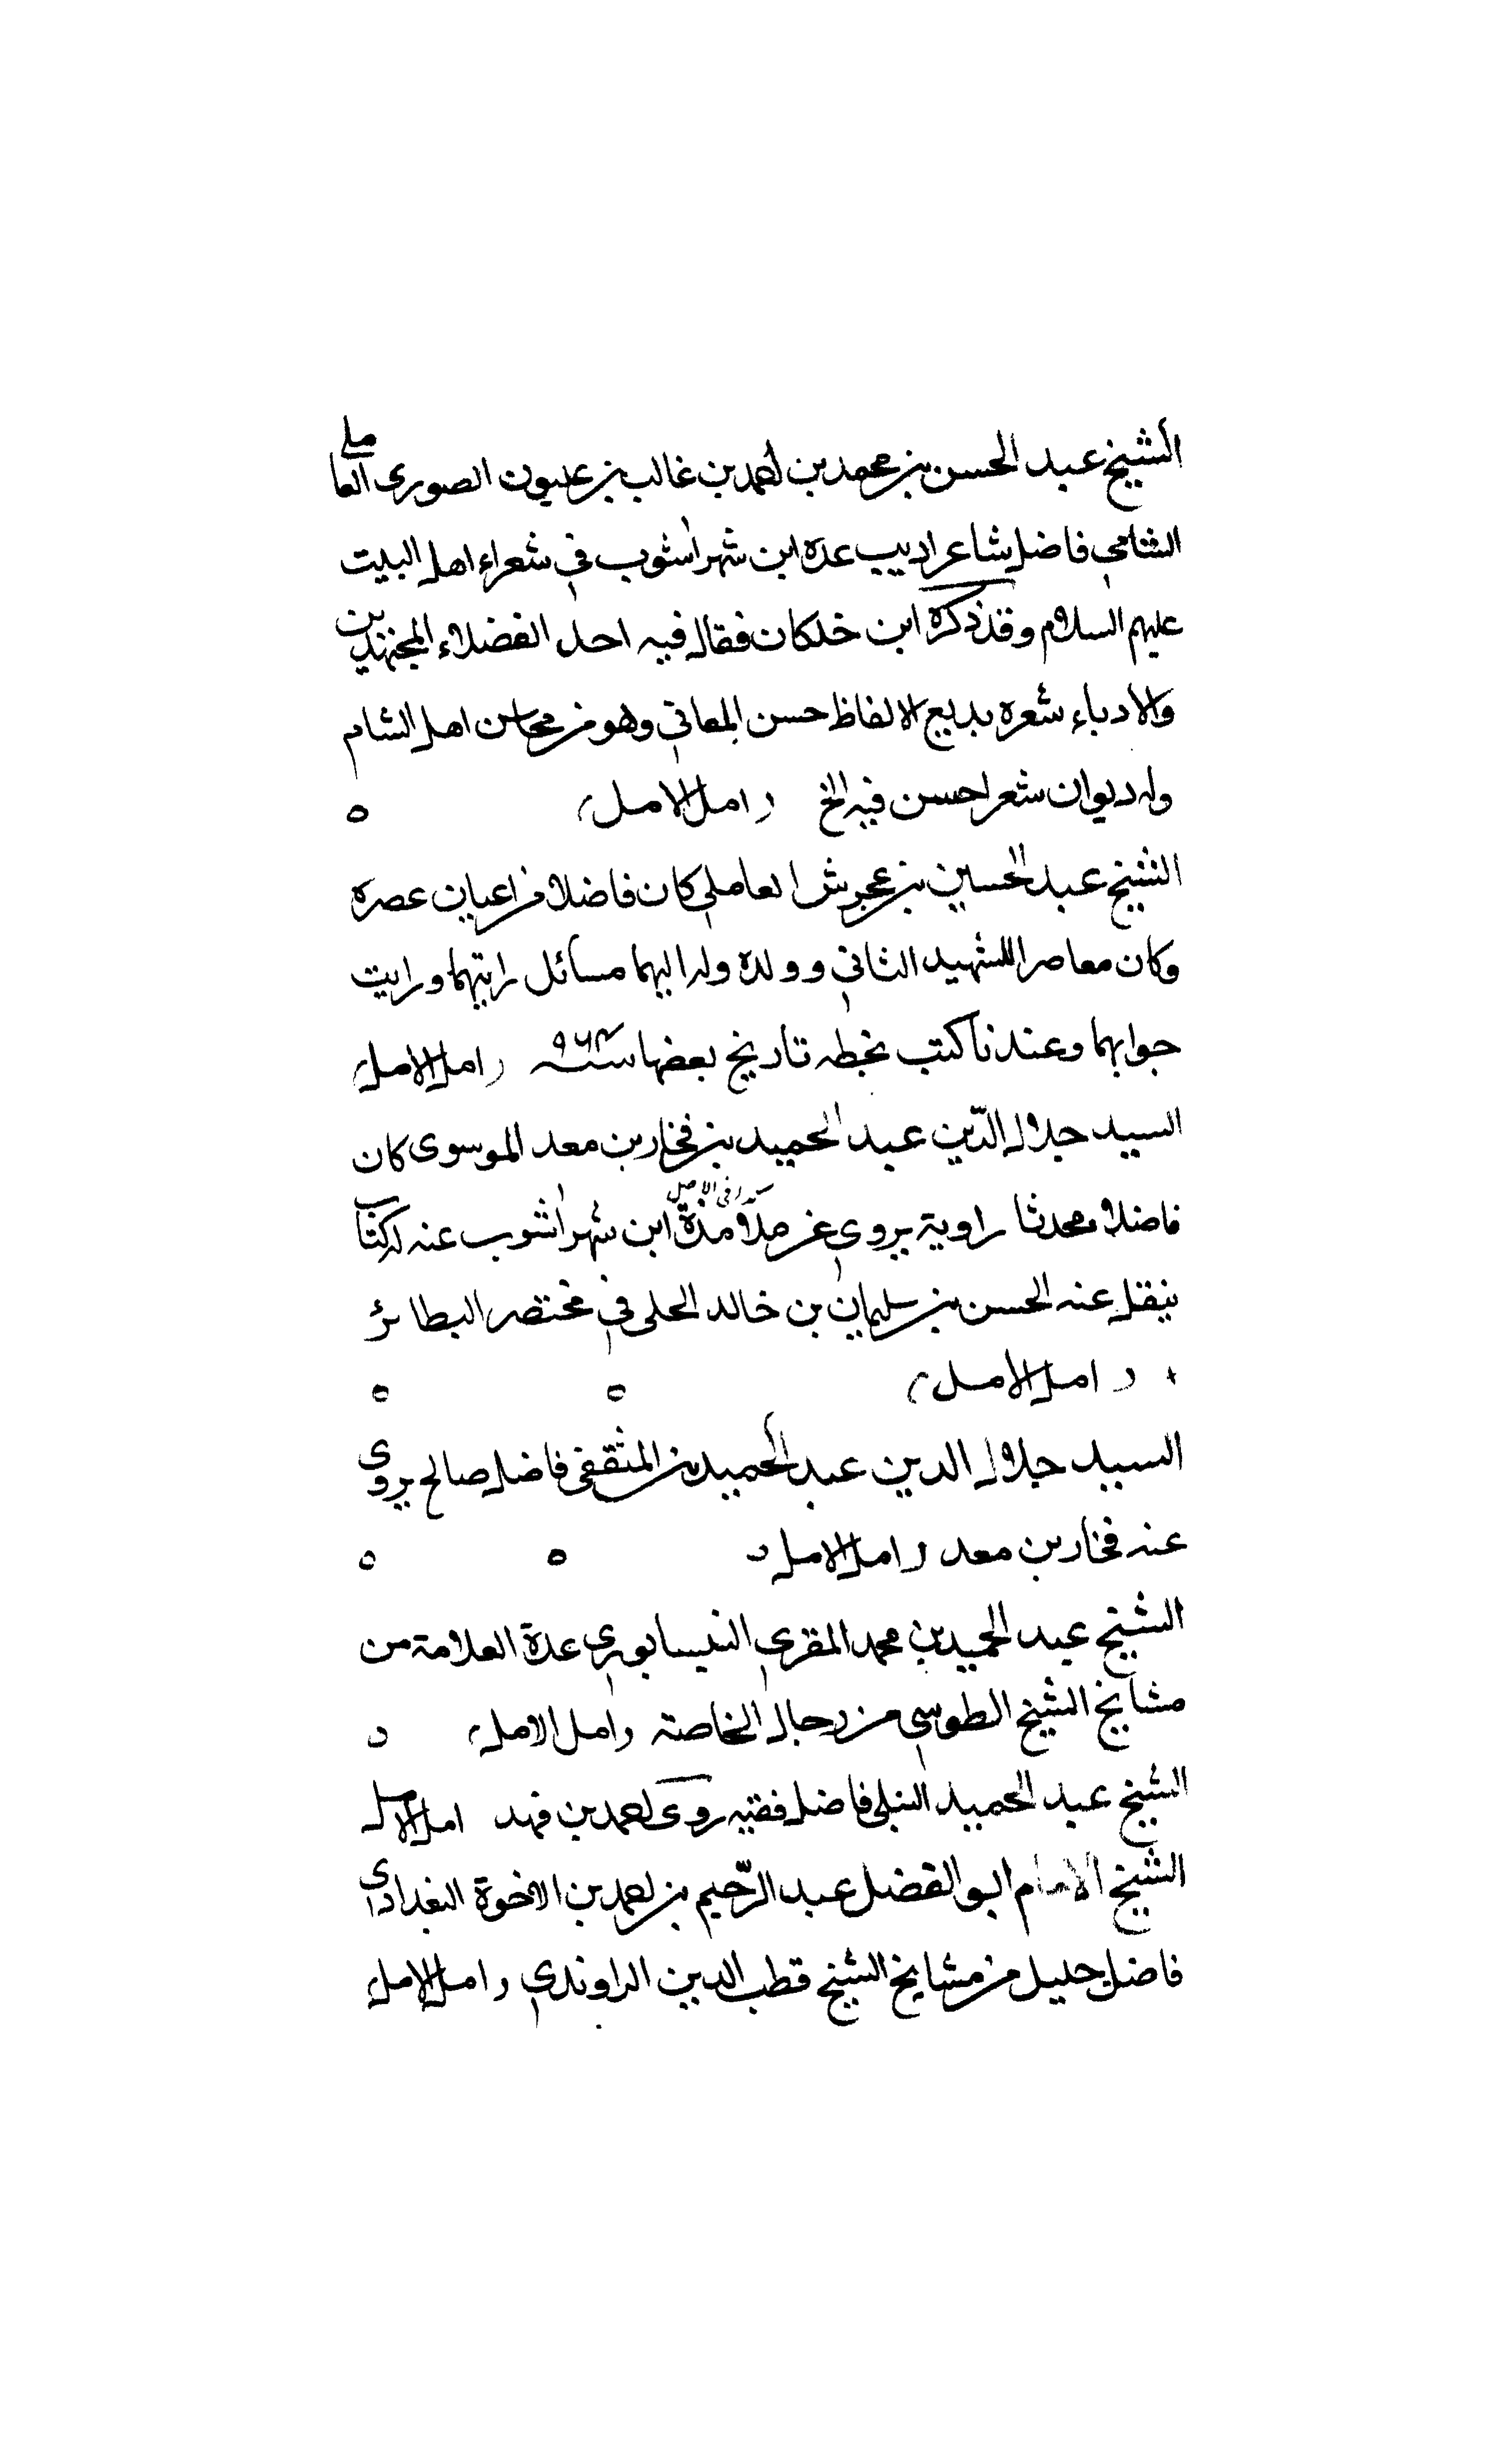 الشيخ عبد الحسن بن محمد بن احمد بن غالب بن عليون الصوري العاملي
الشامي فاضل شاعر اديب عده ابن شهراشوب في شعراء اهل البيت
عليهم السلام وقد ذكره ابن خلكان فقال فيه احد الفضلاء المجتهدين
والادباء شعره بديع الالفاظ حسن المعاني وهو من محاسن اهل الشام
وله ديوان شعر احسن فيه الخ ( امل الامل )
الشيخ عبد الحسين بن عجرش العاملي كان فاضلا من اعيان عصره
وكان معاصرا للشهيد الثاني وولده وله اليهما مسائل رايتهما ورايت
جوابهما وعندنا كتب بخطه تاريخ بعضها سنة ٩٦٣ ( امل الامل )
السيد جلال الدين عبد الحميد بن فخار بن معد الموسوي كان
فاضلا محدثا راوية يروي عن ملامذة ابن شهراشوب عنه له كتاب
كذا في الاصل
ينقل عنه الحسن بن سليمان بن خالد الحلي في مختصر البطائر
( امل الامل )
السيد جلال الدين عبد الحميد بن المثقفى فاضل صالح يروي
عنه فخار بن معد ( امل الامل )
الشيخ عبد الحميد بن محمد المقري النيسابوري عدة العلامة من
مشايخ الشيخ الطوسي من رجال الخاصة ( امل الامل )
الشيخ عبد الحميد النيلي فاضل فقيه روى احمد بن فهد امل الامل
الشيخ الامام ابو الفضل عبد الرّحيم بن احمد بن الاخوة البغدادي
فاضل جليل من مشايخ الشيخ قطب الدين الراوندي ( امل الامل )